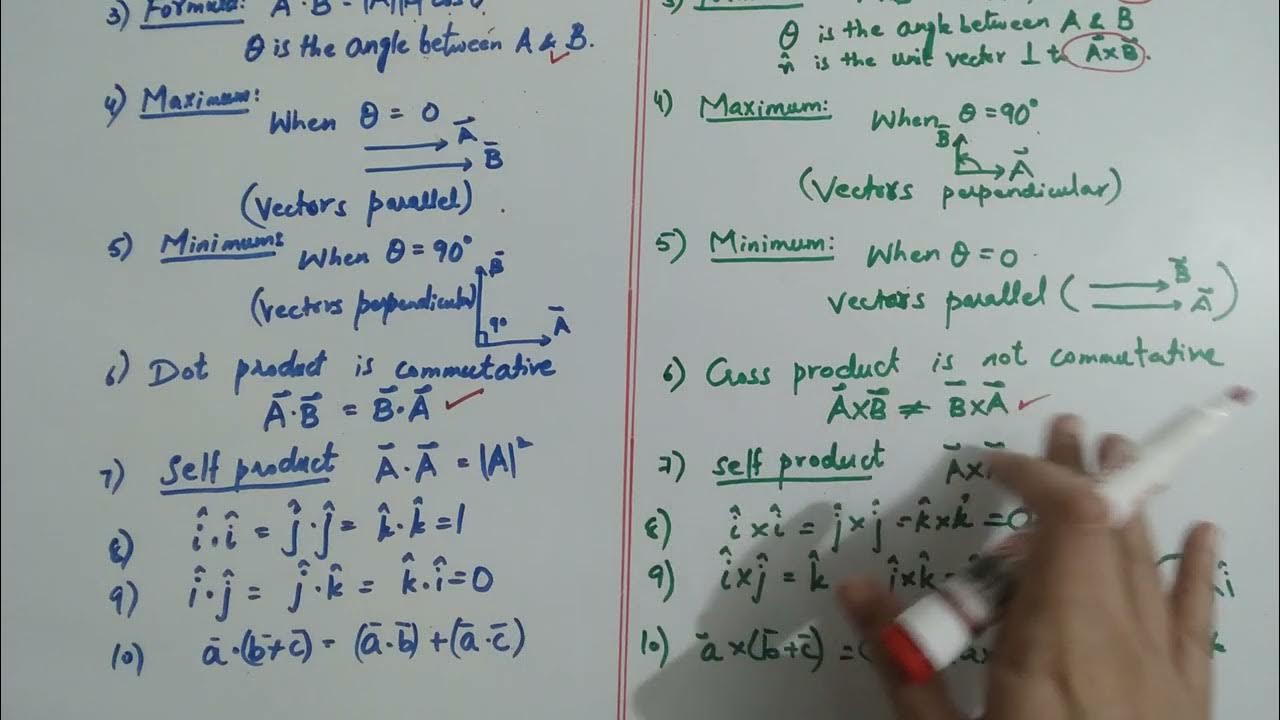 3) Formula: A · B = |A||B| cos θ
θ is the angle between A & B.
4) Maximum:
When θ = 0
A⃗
B⃗
(Vectors parallel)
5) Minimum:
When θ = 90°
B⃗
(Vectors perpendicular)
90
A⃗
6) Dot product is commutative
A⃗·B⃗ = B⃗·A⃗ ✓
7) Self product A⃗·A⃗ = |A|²
8) î·î = ĵ·ĵ = k̂·k̂ = 1
9) î·ĵ = ĵ·k̂ = k̂·î = 0
10) a̅·(b̅+c̅) = (a̅·b̅) + (a̅·c̅)
θ is the angle between A & B
n̂ is the unit vector ⊥ to A⃗×B⃗.
4) Maximum:
When θ = 90°
B⃗
A⃗
(Vectors perpendicular)
5) Minimum: When θ = 0
Vectors parallel (
B⃗
A⃗ )
6) Cross product is not commutative
A⃗×B⃗ ≠ B⃗×A⃗ ✓
7) Self product A⃗×
8) î×î = ĵ×ĵ = k̂×k̂ = 0
9) î×ĵ = k̂ î×k̂
10) a̅×(b̅+c̅) =